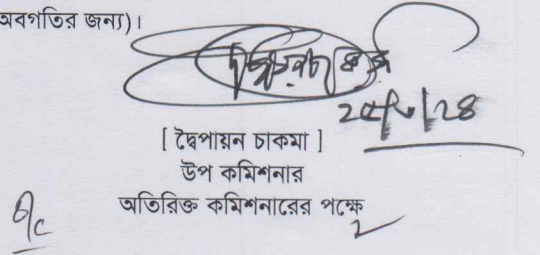 অবগতির জন্য)।
[ দ্বৈপায়ন চাকমা ]
উপ কমিশনার
অতিরিক্ত কমিশনারের পক্ষে